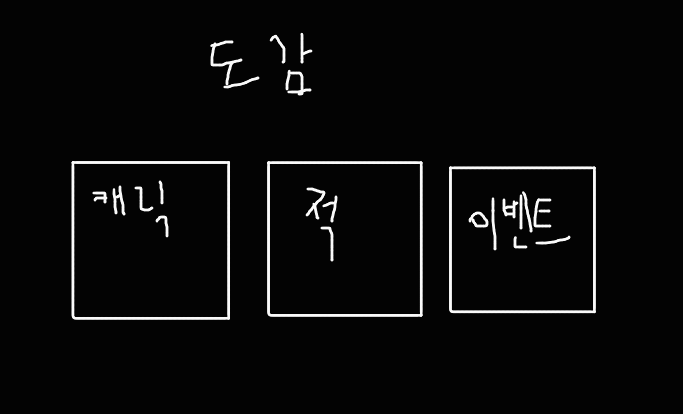 도감
캐릭
적
이벤트